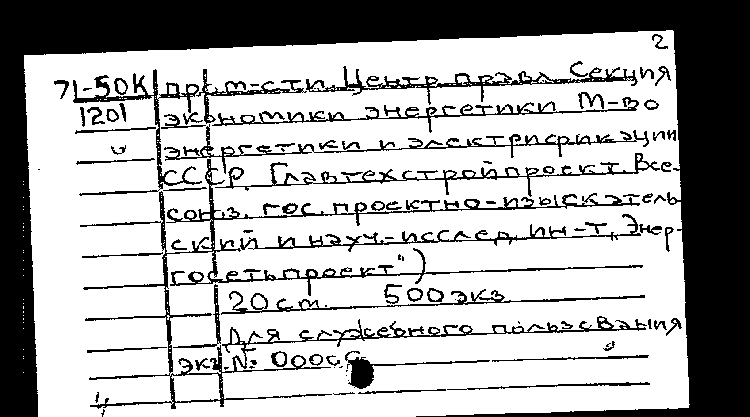 2
71-50К пром-сти. Центр. правл. Секция
1201 экономики энергетики М-во
энергетики и электрификации
СССР. Главтехстройпроект. Все-
союз. гос. проектно-изыскатель-
ский и науч.-исслед. ин-т „Энер-
госетьпроект")
20 ст. 500 экз
Для служебного пользования
экз. №